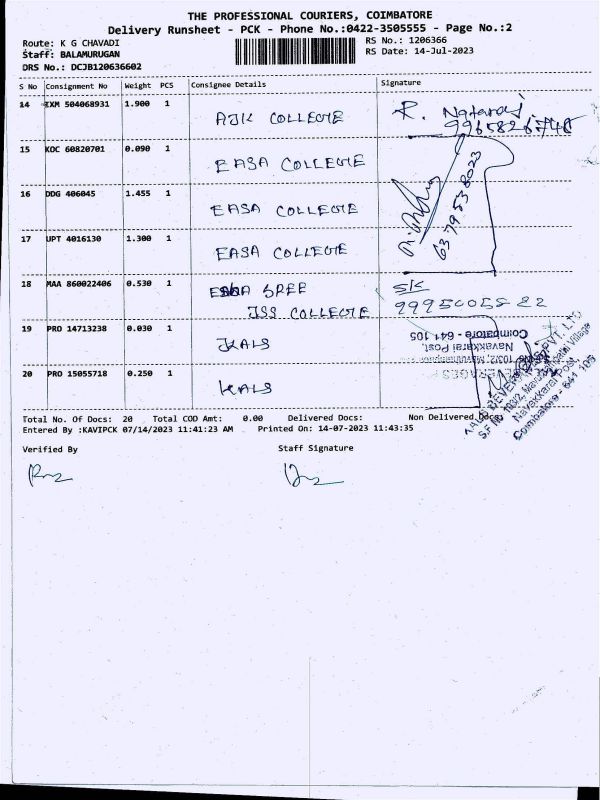 THE PROFESSIONAL COURIERS, COIMBATORE
Delivery Runsheet - PCK - Phone No.:0422-3505555 - Page No.:2
Route: K G CHAVADI RS No.: 1206366
Staff: BALAMURUGAN RS Date: 14-Jul-2023
DRS No.: DCJB120636602
S No Consignment No Weight PCS Consignee Details Signature
14 EXM 504068931 1.900 1 AJK COLLEGE R. Nataraj
9965826748
15 KOC 60820701 0.090 1 EASA COLLEGE
16 DDG 406045 1.455 1 EASA COLLEGE
6379538023
17 UPT 4016130 1.300 1 EASA COLLEGE
18 MAA 860022406 0.530 1 SREE
JSS COLLEGE
19 PRO 14713238 0.030 1 KALS
20 PRO 15055718 0.250 1 KALS
Navakkarai Post,
Coimbatore - 641 105
Navakkarai Post,
Coimbatore - 641 105
Total No. Of Docs: 20 Total COD Amt: 0.00 Delivered Docs: Non Delivered Docs:
Entered By :KAVIPCK 07/14/2023 11:41:23 AM Printed On: 14-07-2023 11:43:35
Verified By Staff Signature